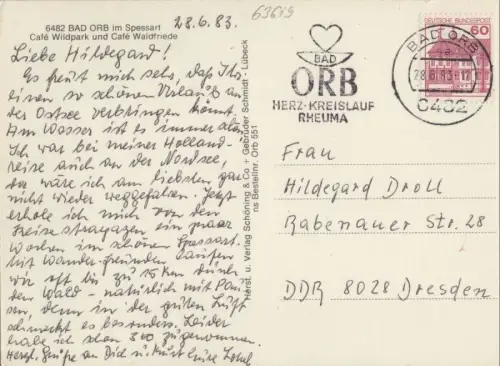 6482 BAD ORB im Spessart
Café Wildpark und Café Waldfriede
28.6.83.
63619
Liebe Hildegard!
Es freut mich sehr, daß Ihr
einen so schönen Urlaub an
der Ostsee verbringen könnt.
Am Wasser ist es immer schön.
Ich war bei meiner Holland-
reise auch an der Nordsee,
da wäre ich am liebsten gar
nicht wieder weggefahren. Jetzt
erhole ich mich von den
Reisestrapazen ein paar
Wochen im schönen Spessart.
Mit Wanderfreunden laufen
wir oft bis zu 15 km durch
den Wald - natürlich mit Pau
sen, denn in der guten Luft
schmeckt es besonders. Leider
habe ich schon 3 Kg zugenommen.
Herzl. Grüße an Dich u. Kurt
Herst. u. Verlag Schöning & Co + Gebrüder Schmidt - Lübeck
Bestellnr. Orb 551
BAD
ORB
HERZ-KREISLAUF
RHEUMA
DEUTSCHE BUNDESPOST
60
BAD ORB
28.6.83-17
6482
Frau
Hildegard Droll
Rabenauer Str. 28
DDR 8028 Dresden